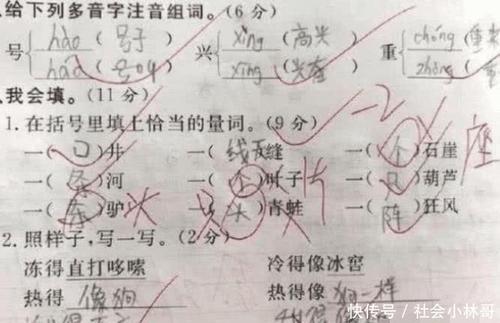 给下列多音字注音组词。(6分)
号 hào(号子) 兴 xìng(高兴) 重 chóng(重
háo(号叫) xīng(兴奋) zhòng(重
我会填。(11分)
1.在括号里填上恰当的量词。(9分) -2
一(口)井 一(线)天缝 一(个)石崖 座
一(条)河 一(个)叶子 片 一(只)葫芦
一(条)驴 头 一(头)青蛙 只 一(阵)狂风
2.照样子,写一写。(2分)
冻得直打哆嗦 冷得像冰窖
热得 像狗 热得像 狗一样
快传号/社会小林哥